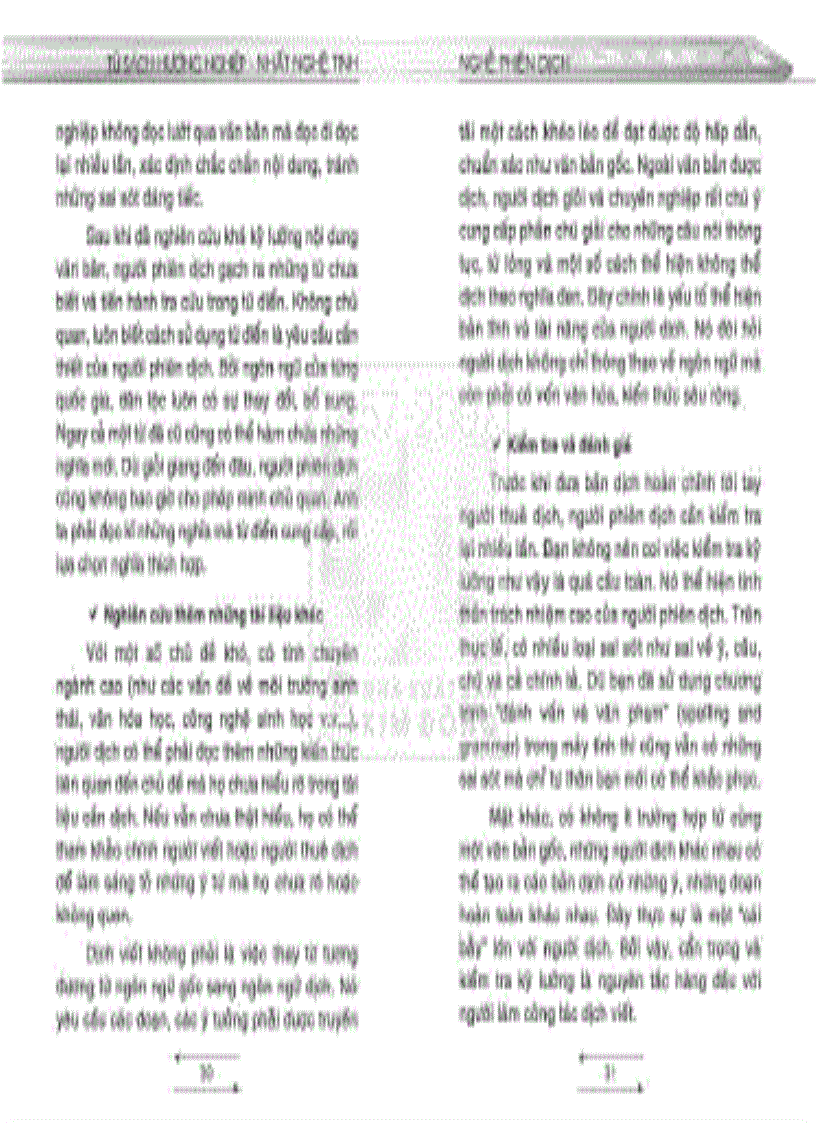 TỦ SÁCH HƯỚNG NGHIỆP - NHẤT NGHỆ TINH
nghiệp không đọc lướt qua văn bản mà đọc đi đọc
lại nhiều lần, xác định chắc chắn nội dung, tránh
những sai sót đáng tiếc.
Sau khi đã nghiên cứu khá kỹ lưỡng nội dung
văn bản, người phiên dịch gạch ra những từ chưa
biết và tiến hành tra cứu trong từ điển. Không chủ
quan, luôn biết cách sử dụng từ điển là yêu cầu cần
thiết của người phiên dịch. Bởi ngôn ngữ của từng
quốc gia, dân tộc luôn có sự thay đổi, bổ sung.
Ngay cả một từ đã cũ cũng có thể hàm chứa những
nghĩa mới. Dù giỏi giang đến đâu, người phiên dịch
cũng không bao giờ cho phép mình chủ quan. Anh
ta phải đọc kĩ những nghĩa mà từ điển cung cấp, rồi
lựa chọn nghĩa thích hợp.
✓ Nghiên cứu thêm những tài liệu khác
Với một số chủ đề khó, có tính chuyên
ngành cao (như các vấn đề về môi trường sinh
thái, văn hóa học, công nghệ sinh học v.v...),
người dịch có thể phải đọc thêm những kiến thức
liên quan đến chủ đề mà họ chưa hiểu rõ trong tài
liệu cần dịch. Nếu vẫn chưa thật hiểu, họ có thể
tham khảo chính người viết hoặc người thuê dịch
để làm sáng tỏ những ý từ mà họ chưa rõ hoặc
không quen.
Dịch viết không phải là việc thay từ tương
đương từ ngôn ngữ gốc sang ngôn ngữ dịch. Nó
yêu cầu các đoạn, các ý tưởng phải được truyền
30
NGHỀ PHIÊN DỊCH
tải một cách khéo léo để đạt được độ hấp dẫn,
chuẩn xác như văn bản gốc. Ngoài văn bản được
dịch, người dịch giỏi và chuyên nghiệp rất chú ý
cung cấp phần chú giải cho những câu nói thông
tục, từ lóng và một số cách thể hiện không thể
dịch theo nghĩa đen. Đây chính là yếu tố thể hiện
bản lĩnh và tài năng của người dịch. Nó đòi hỏi
người dịch không chỉ thông thạo về ngôn ngữ mà
còn phải có vốn văn hóa, kiến thức sâu rộng.
✓ Kiểm tra và đánh giá
Trước khi đưa bản dịch hoàn chỉnh tới tay
người thuê dịch, người phiên dịch cần kiểm tra
lại nhiều lần. Bạn không nên coi việc kiểm tra kỹ
lưỡng như vậy là quá cầu toàn. Nó thể hiện tinh
thần trách nhiệm cao của người phiên dịch. Trên
thực tế, có nhiều loại sai sót như sai về ý, câu,
chữ và cả chính tả. Dù bạn đã sử dụng chương
trình "đánh vần và văn phạm" (spelling and
grammar) trong máy tính thì cũng vẫn có những
sai sót mà chỉ tự thân bạn mới có thể khắc phục.
Mặt khác, có không ít trường hợp từ cùng
một văn bản gốc, những người dịch khác nhau có
thể tạo ra các bản dịch có những ý, những đoạn
hoàn toàn khác nhau. Đây thực sự là một "cái
bẫy" lớn với người dịch. Bởi vậy, cẩn trọng và
kiểm tra kỹ lưỡng là nguyên tắc hàng đầu với
người làm công tác dịch viết.
31
KIM ĐỒNG